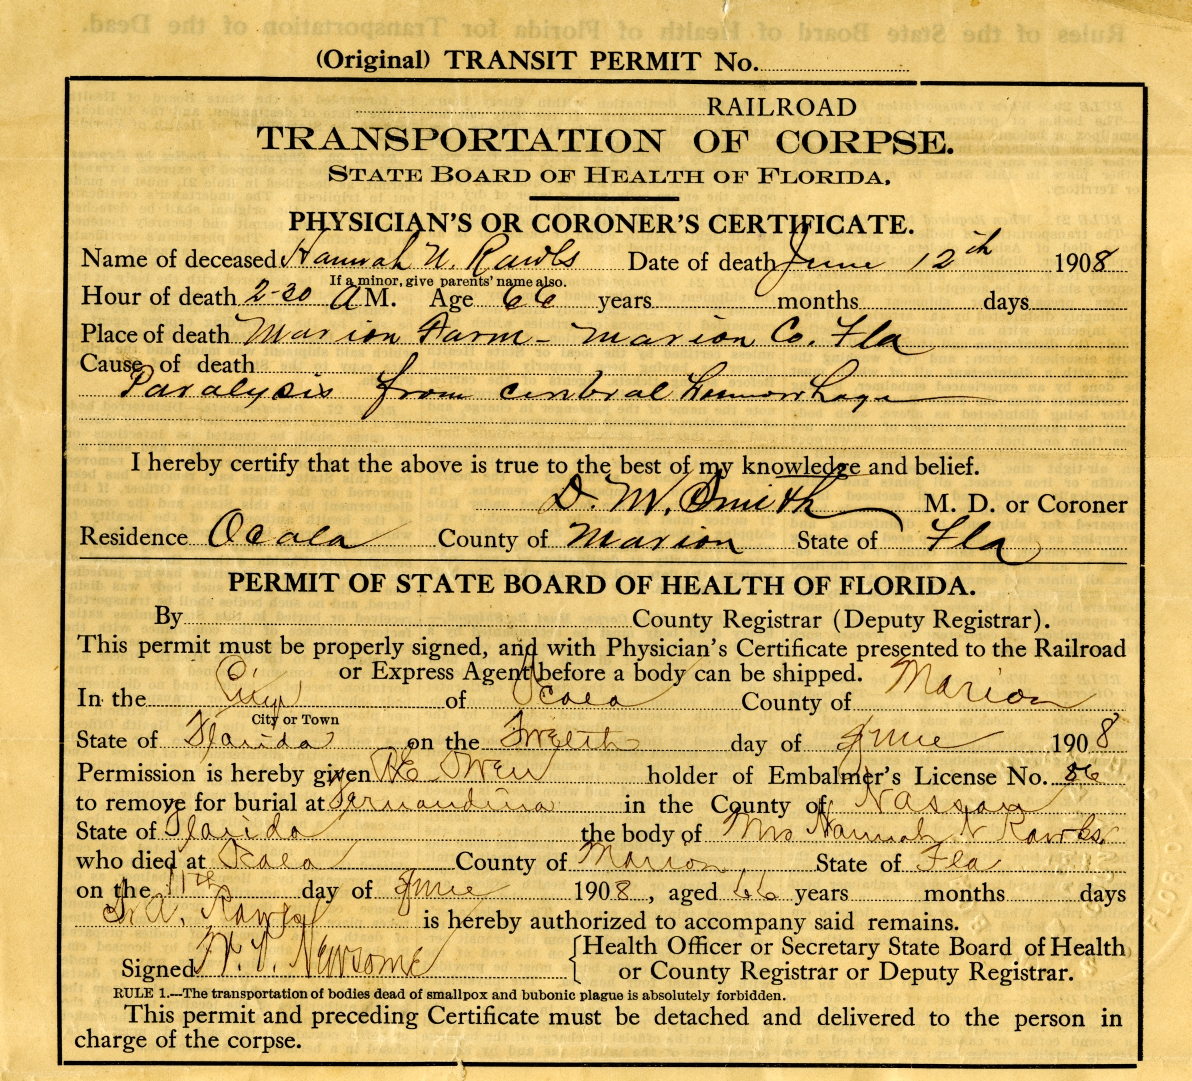 (Original) TRANSIT PERMIT No.
RAILROAD
TRANSPORTATION OF CORPSE.
STATE BOARD OF HEALTH OF FLORIDA.
PHYSICIAN'S OR CORONER'S CERTIFICATE.
Name of deceased Hannah N. Rawls Date of death June 12th 1908
If a minor, give parents' name also.
Hour of death 2-30 A M. Age 66 years months days
Place of death Marion Farm - Marion Co. Fla
Cause of death
Paralysis from cerebral hemorrhage
I hereby certify that the above is true to the best of my knowledge and belief.
D. M. Smith M. D. or Coroner
Residence Ocala County of Marion State of Fla
PERMIT OF STATE BOARD OF HEALTH OF FLORIDA.
By County Registrar (Deputy Registrar).
This permit must be properly signed, and with Physician's Certificate presented to the Railroad
or Express Agent before a body can be shipped.
In the City of Ocala County of Marion
City or Town
State of Florida on the Twelth day of June 1908
Permission is hereby given Owen holder of Embalmer's License No. 86
to remove for burial at Fernandina in the County of Nassau
State of Florida the body of Mrs Hannah N Rawls
who died at Ocala County of Marion State of Fla
on the 11th day of June 1908, aged 66 years months days
Rawls is hereby authorized to accompany said remains.
Signed Newsome Health Officer or Secretary State Board of Health
or County Registrar or Deputy Registrar.
RULE 1.—The transportation of bodies dead of smallpox and bubonic plague is absolutely forbidden.
This permit and preceding Certificate must be detached and delivered to the person in
charge of the corpse.